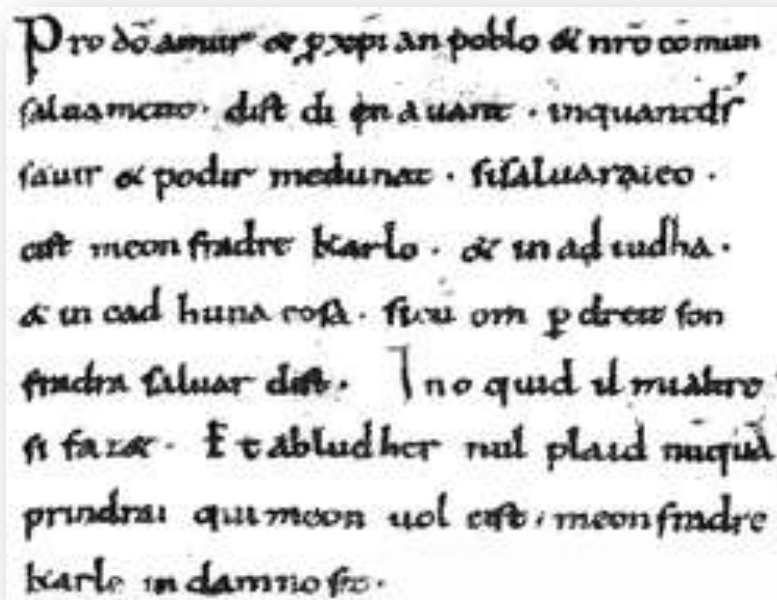 Pro dō amur & p xp̄ian poblo & nr̄o cōmun
saluament. dist di en auant. inquantds
sauir & podir medunat. sisaluaraieo.
cist meon fradre karlo. & in ad iudha.
& in cad huna cosa. sicū om p dreit son
fradra saluar dist. Ino quid il mialtro
si faz&. Et abludher nul plaid nūquā
prindrai qui meon uol cist. meonfradre
karle in damno sit.